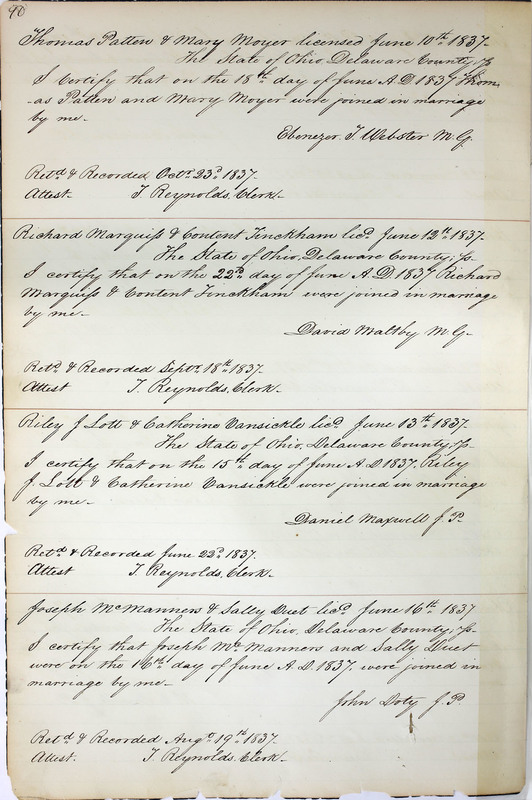 90
Thomas Patten & Mary Moyer licensed June 10th 1837-
The State of Ohio, Delaware County, ss
I Certify that on the 18th day of June A.D 1837 Thom
-as Patten and Mary Moyer were joined in marriage
by me-
Ebenezer T. Webster M.G.
Retd & Recorded Octr 23d 1837.
Attest. T. Reynolds, Clerk-
Richard Marquiss & Content Finckham licd June 12th 1837-
The State of Ohio, Delaware County, ss-
I certify that on the 22nd day of June A.D 1837 Richard
Marquiss & Content Finckham were joined in marriage
by me-
David Maltby M.G-
Retd & Recorded Septr 18th 1837.
Attest T. Reynolds, Clerk-
Riley J Lott & Catherine Vansickle licd June 13th 1837.
The State of Ohio, Delaware County, ss-
I certify that on the 15th day of June A.D 1837. Riley
J Lott & Catherine Vansickle were joined in marriage
by me-
Daniel Maxwell J.P.
Retd & Recorded June 22d 1837.
Attest T. Reynolds, Clerk-
Joseph McManners & Sally Duet licd June 16th 1837
The State of Ohio, Delaware County, ss-
I certify that Joseph McManners and Sally Duet
were on the 16th day of June A.D. 1837. were joined in
marriage by me-
John Doty J.P.
Retd & Recorded Augt 19th 1837.
Attest. T. Reynolds, Clerk-